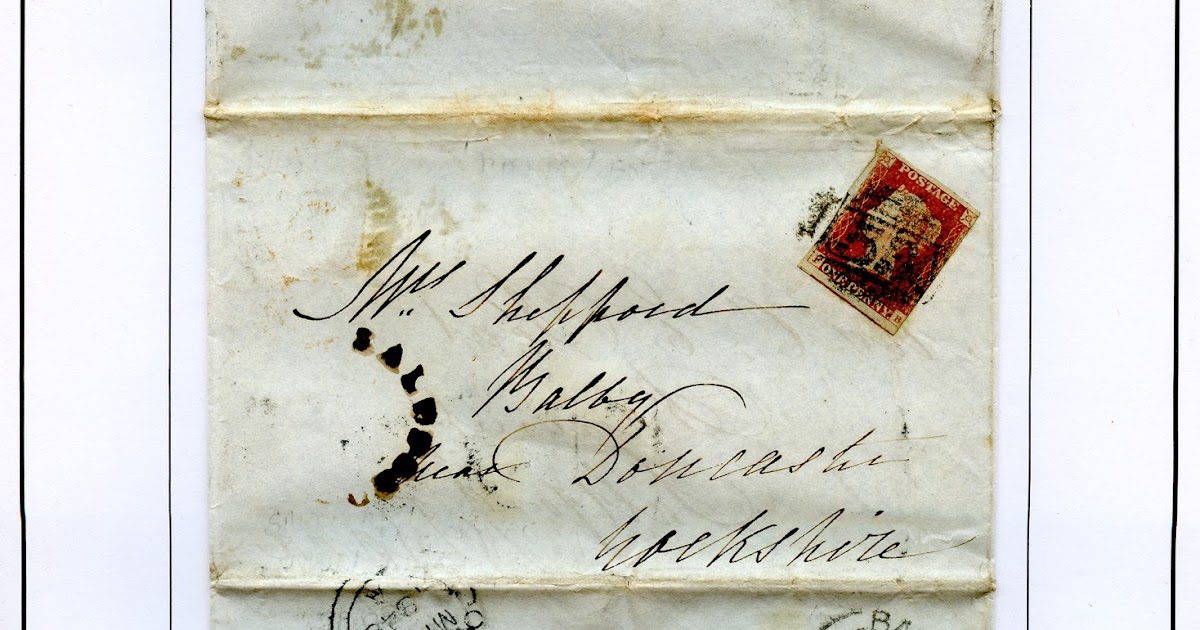 POSTAGE
ONE PENNY
B
Mrs. Sheppard
Balby
near Doncaster
Yorkshire
BA